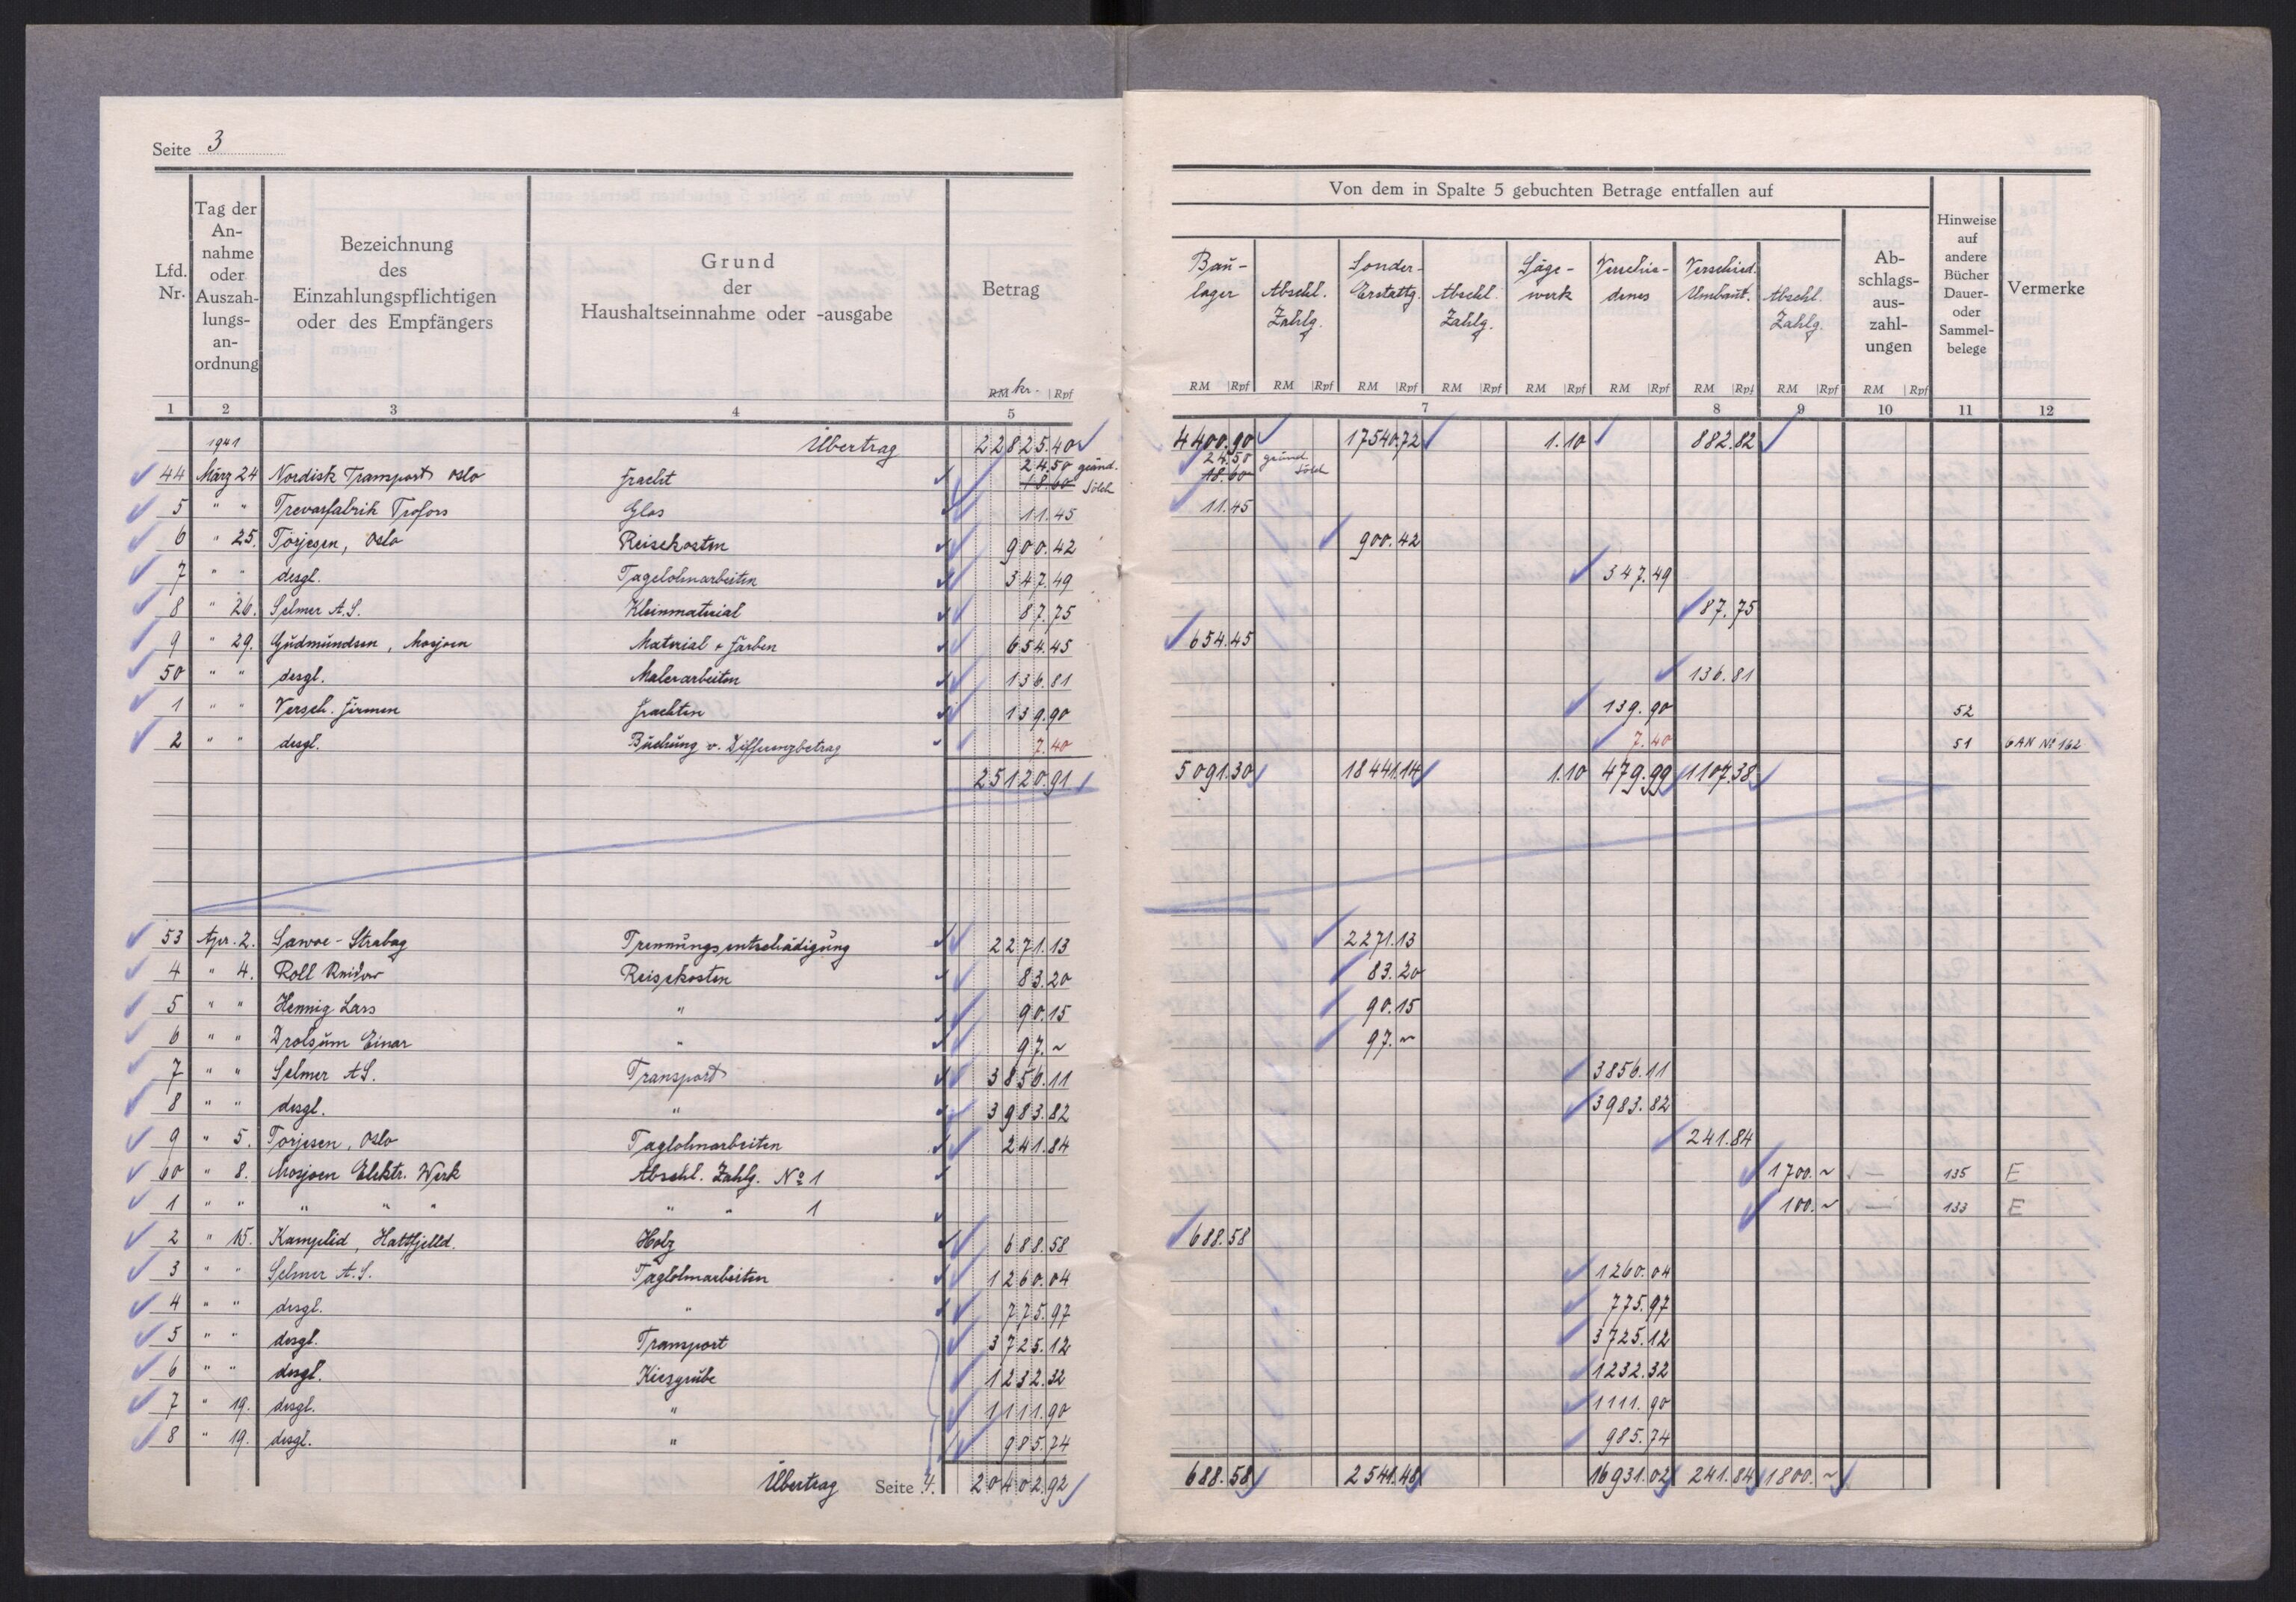 Seite 3
Lfd. Nr. | Tag der Annahme oder Auszahlungsanordnung | Bezeichnung des Einzahlungspflichtigen oder des Empfängers | Grund der Haushaltseinnahme oder -ausgabe | Betrag
RM kr. Rpf
1 2 3 4 5
1941 Übertrag 22825.40
44 März 24 Nordisk Transport Oslo Fracht 24.50 geänd. 18.60 Sölch
5 " " Trevarfabrik Trofors Glas 11.45
6 " 25. Torjesen, Oslo Reisekosten 900.42
7 " " desgl. Tagelohnarbeiten 347.49
8 " 26. Selmer A.S. Kleinmaterial 87.75
9 " 29. Gudmundsen, Mosjoen Material + Farben 654.45
50 " " desgl. Malerarbeiten 136.81
1 " " Versch. Firmen Frachten 139.90
2 " " desgl. Buchung v. Differenzbetrag 7.40
25120.91
53 Apr. 2. Sawoe-Strabag Trennungsentschädigung 2271.13
4 " 4. Roll Reidar Reisekosten 83.20
5 " " Hennig Lars " 90.15
6 " " Drolsum Einar " 97.~
7 " " Selmer AS. Transport 3856.11
8 " " desgl. " 3983.82
9 " 5. Torjesen, Oslo Taglohnarbeiten 241.84
60 " 8. Mosjoen Elektr. Werk Abschl. Zahlg. No 1
1 " " " " " " " 1
2 " 15. Kamplid, Hattfjelld. Holz 688.58
3 " " Selmer A.S. Taglohnarbeiten 1260.04
4 " " desgl. " 775.97
5 " " desgl. Transport 3725.12
6 " " desgl. Kiesgrube 1232.32
7 " 19. desgl. " 1111.90
8 " 19. desgl. " 985.74
Übertrag Seite 4. 20402.92
Von dem in Spalte 5 gebuchten Betrage entfallen auf
Bau-lager | Abschl. Zahlg. | Sonder-Erstattg. | Abschl. Zahlg. | Säge-werk | Verschie-denes | Verschied. Umbaut. | Abschl. Zahlg. | Abschlagsauszahlungen | Hinweise auf andere Bücher Dauer- oder Sammelbelege | Vermerke
RM Rpf RM Rpf RM Rpf RM Rpf RM Rpf RM Rpf RM Rpf RM Rpf RM Rpf
7 8 9 10 11 12
4400.90 17540.72 1.10 882.82
24.50 geänd. 18.60 Sölch
11.45
900.42
347.49
87.75
654.45
136.81
139.90 52
7.40 51 6AN No 162
5091.30 18441.14 1.10 479.99 1107.38
2271.13
83.20
90.15
97.~
3856.11
3983.82
241.84
1700.~ — 135 E
100.~ — 133 E
688.58
1260.04
775.97
3725.12
1232.32
1111.90
985.74
688.58 2541.48 16931.02 241.84 1800.~